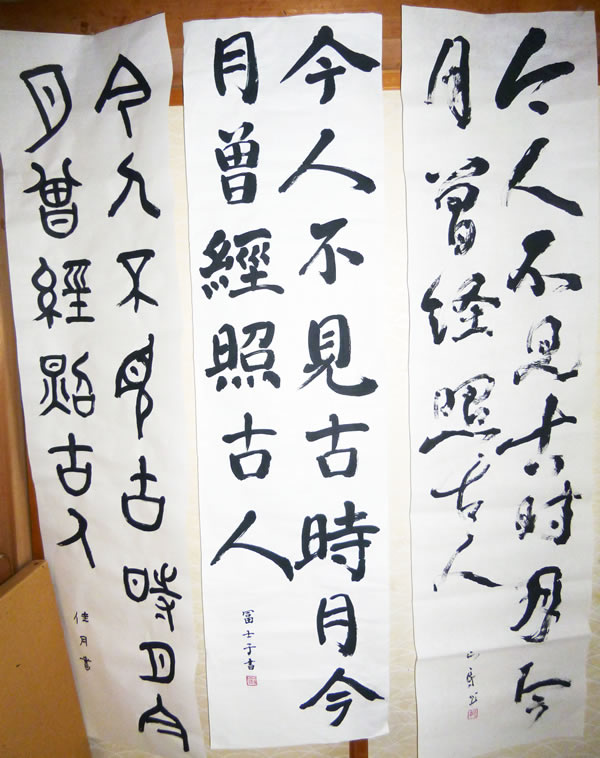 今人不見古时月今
月曽経照古人
今人不見古時月今
月曽經照古人
冨士子書
今人不見古時月今
月曽經照古人
佳月書